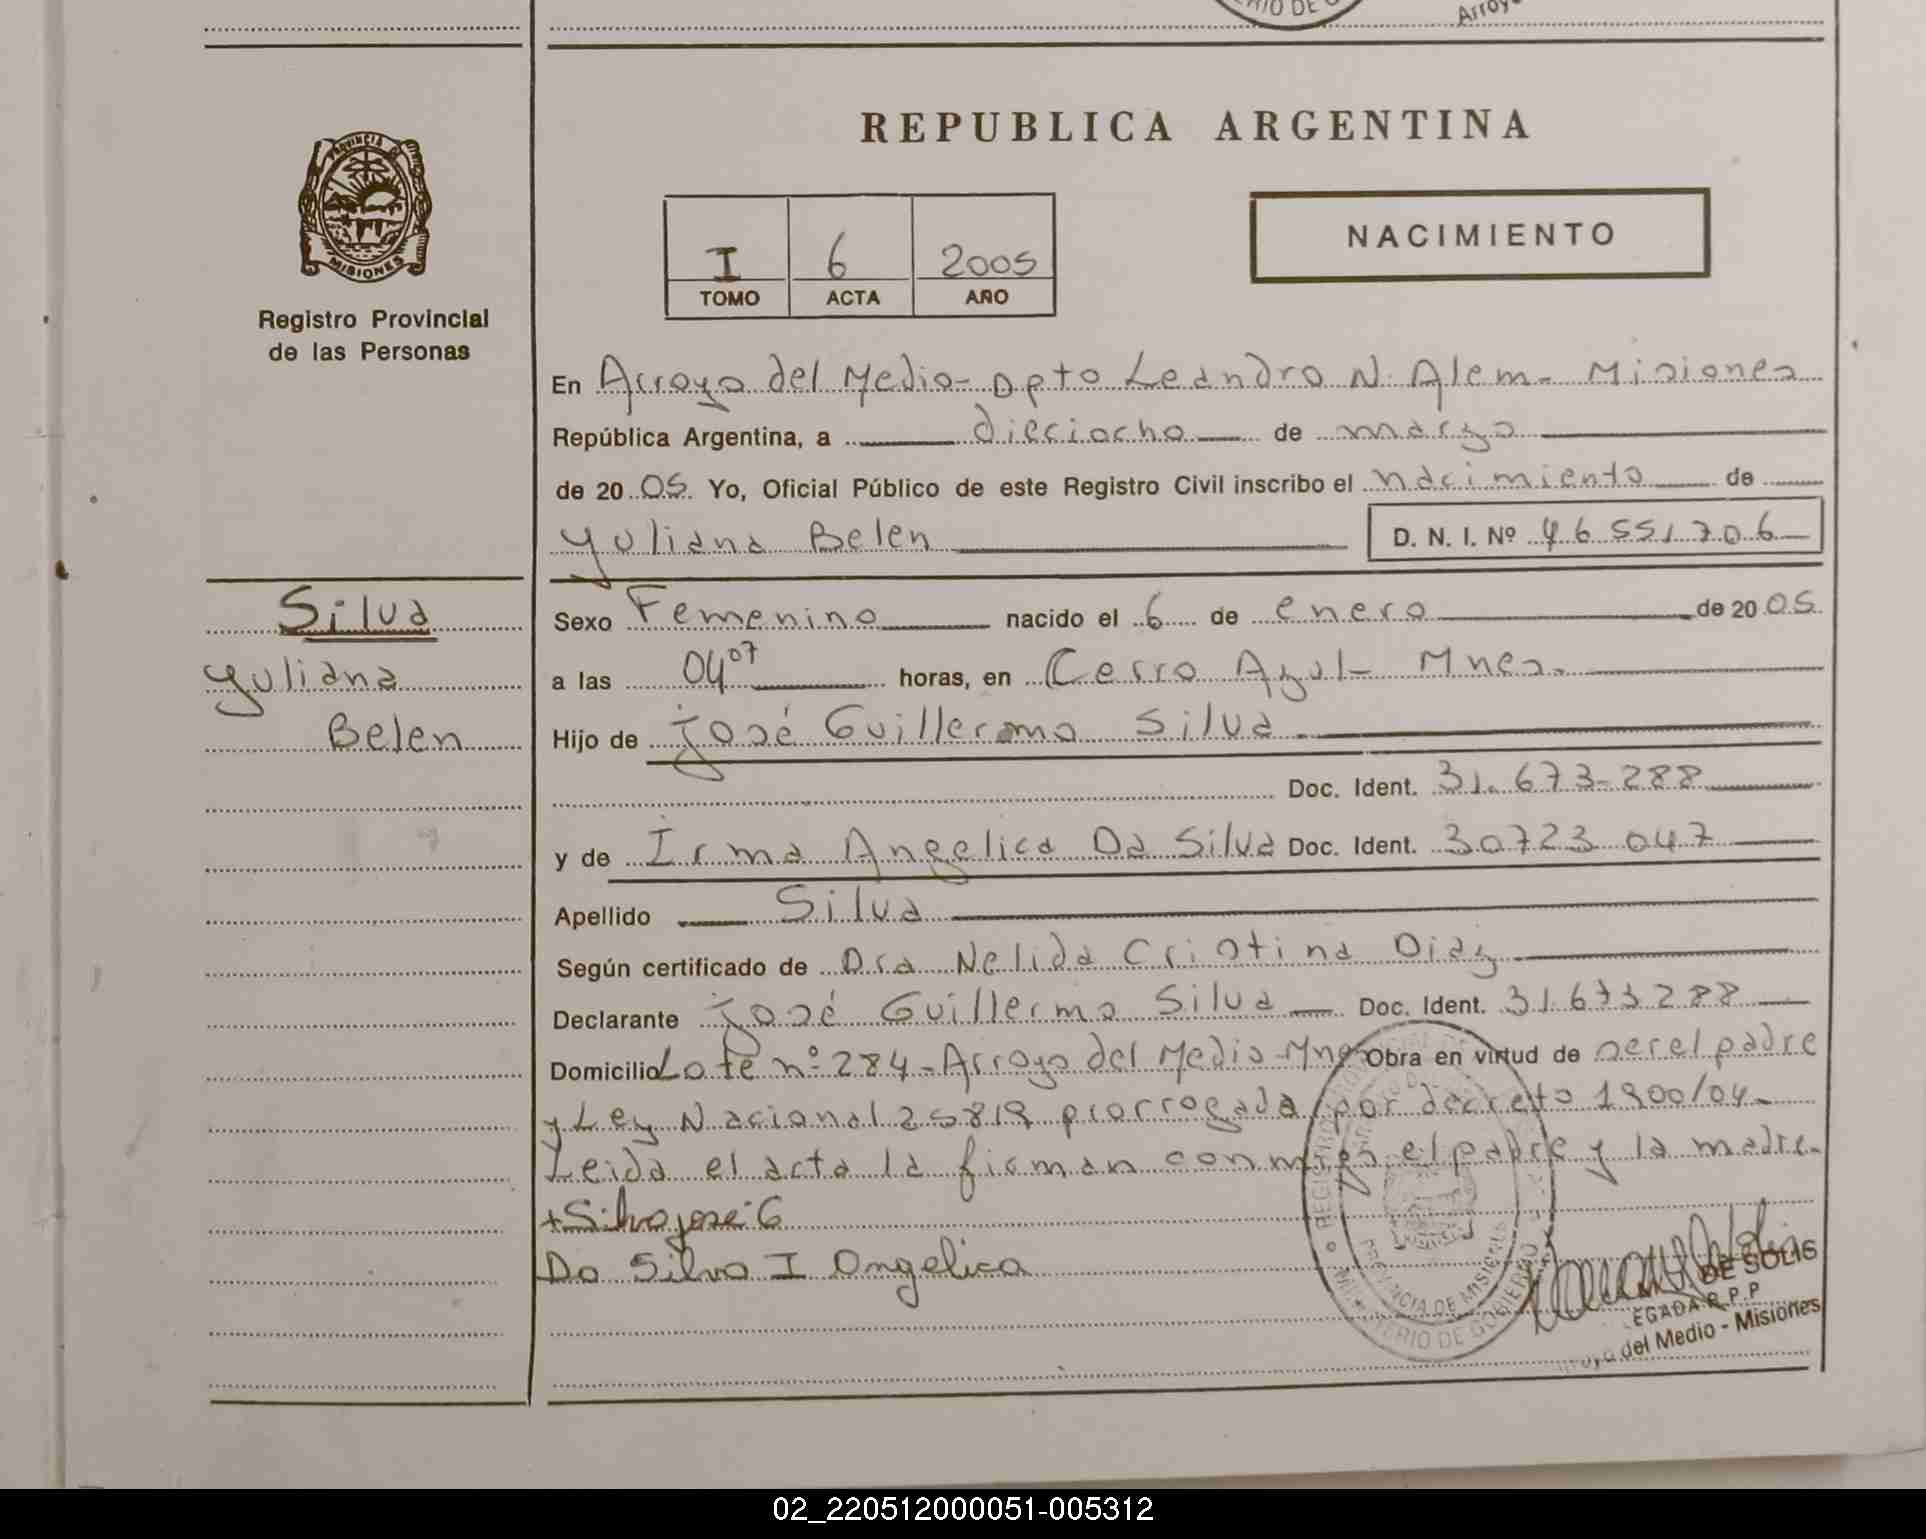 ERIO DE G
Arroy
REPUBLICA ARGENTINA
PROVINCIA DE
MISIONES
Registro Provincial
de las Personas
I 6 2005
TOMO ACTA AÑO
NACIMIENTO
En Arroyo del Medio- Dpto Leandro N. Alem- Misiones
República Argentina, a dieciocho de marzo
de 2005. Yo, Oficial Público de este Registro Civil inscribo el nacimiento de
Yuliana Belen D. N. I. Nº 46551706
Silva
Yuliana
Belen
Sexo Femenino nacido el 6 de enero de 2005
a las 04⁰⁷ horas, en Cerro Azul- Mnes.
Hijo de José Guillermo Silva
Doc. Ident. 31.673-288
y de Irma Angelica Da Silva Doc. Ident. 30723047
Apellido Silva
Según certificado de Dra Nelida Cristina Diaz
Declarante José Guillermo Silva Doc. Ident. 31673288
Domicilio Lote nº 284-Arroyo del Medio-Mnes Obra en virtud de ser el padre
y Ley Nacional 25819 prorrogada por decreto 1900/04-
Leida el acta la firman conmigo el padre y la madre.
+Silva jose G
Da Silva I Angelica
REGISTRO PROVINCIAL DE
PROVINCIA DE MISIONES
MINISTERIO DE GOBIERNO
DE SOLIS
EGADA R.P.P
del Medio - Misiones
02_220512000051-005312